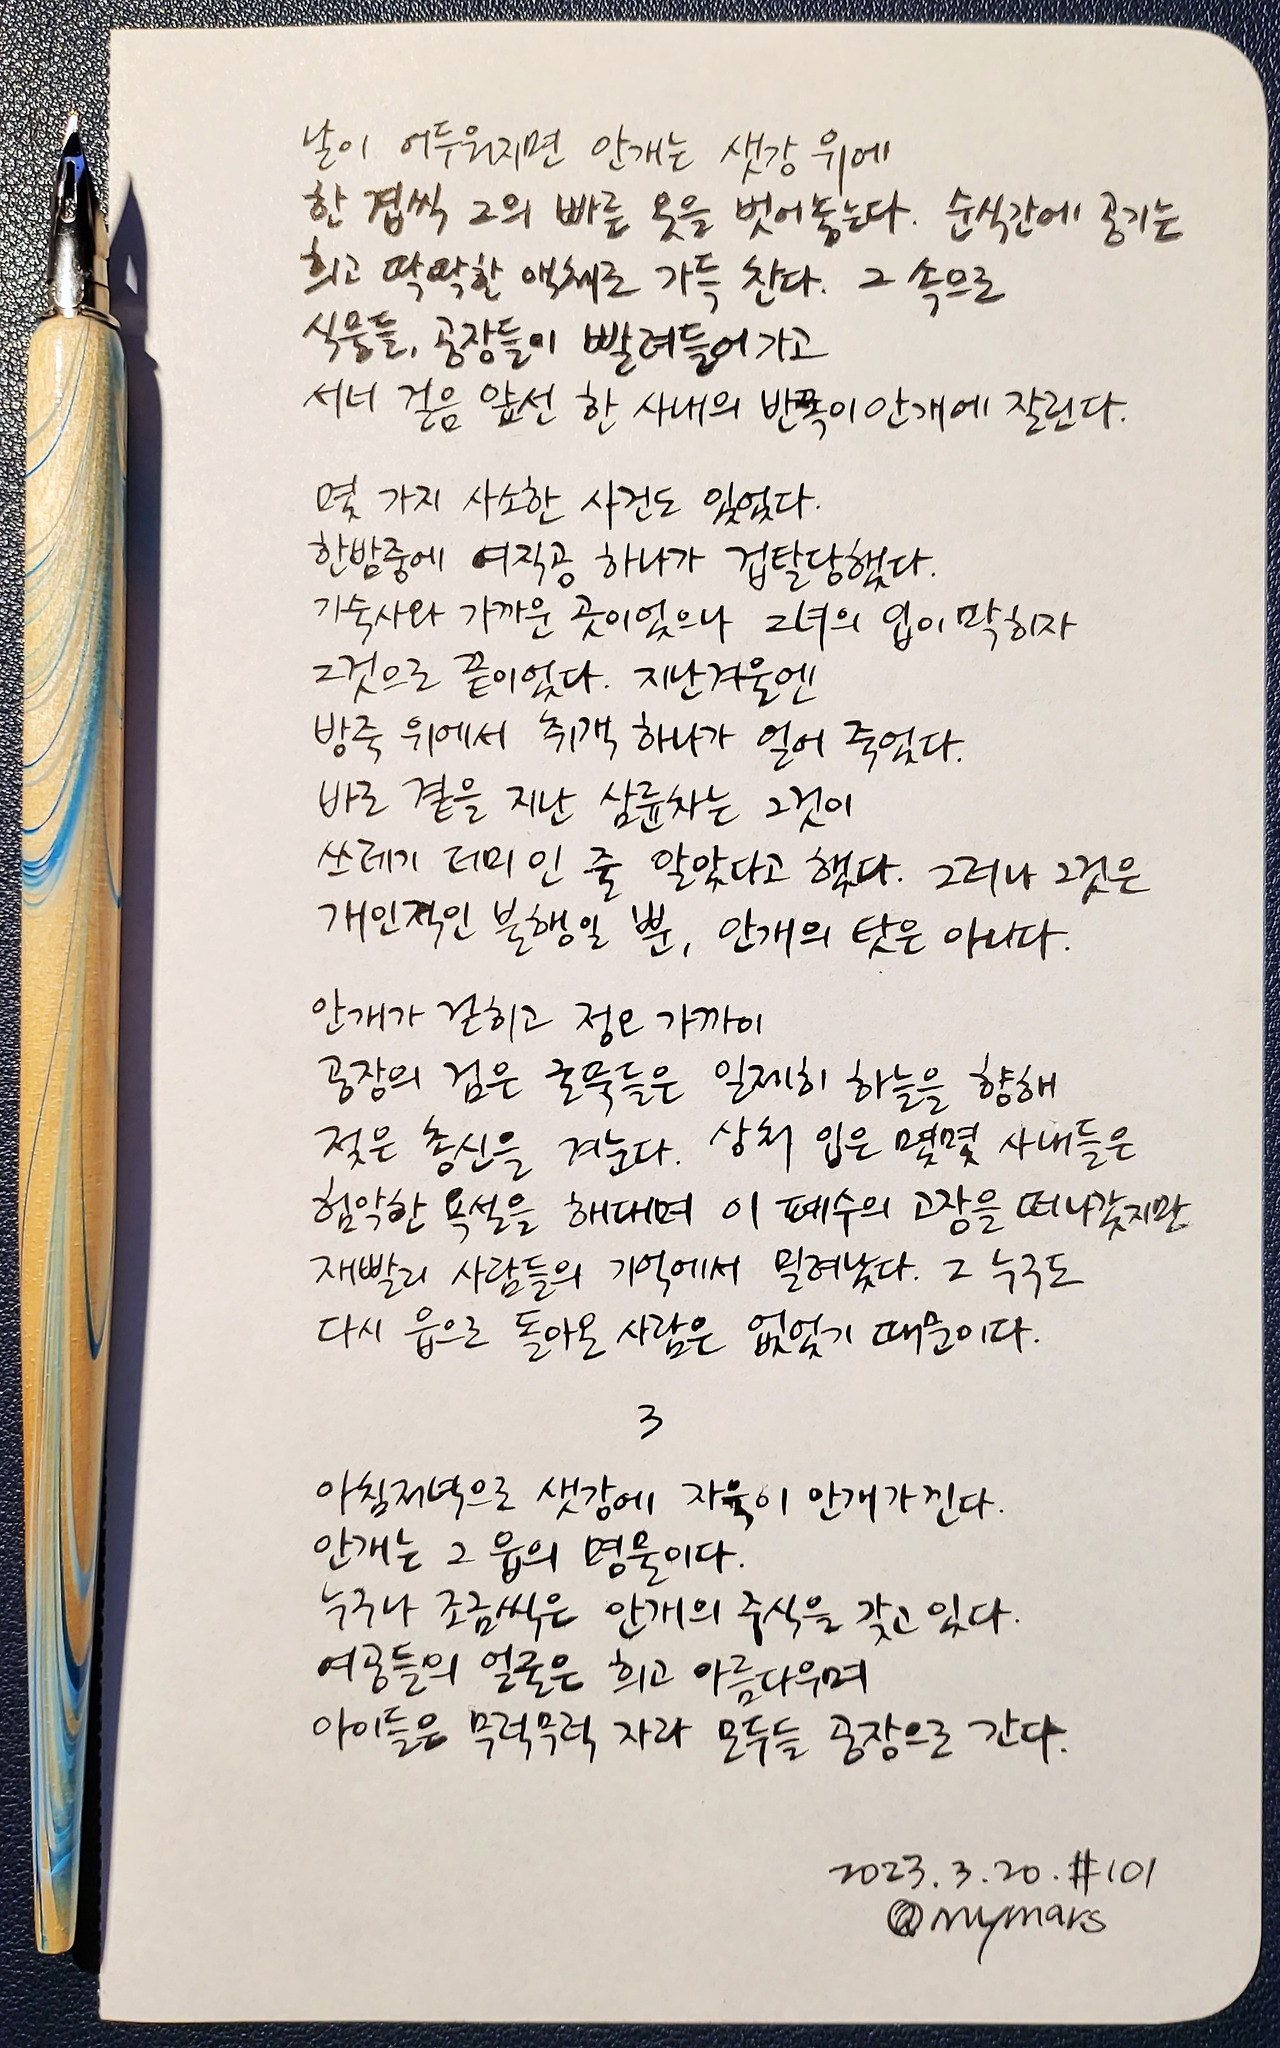 날이 어두워지면 안개는 샛강 위에
한 겹씩 그의 빠른 옷을 벗어놓는다. 순식간에 공기는
희고 딱딱한 액체로 가득 찬다. 그 속으로
식물들, 공장들이 빨려들어가고
서너 걸음 앞선 한 사내의 반쪽이 안개에 잘린다.
몇 가지 사소한 사건도 있었다.
한밤중에 여직공 하나가 겁탈당했다.
기숙사와 가까운 곳이었으나 그녀의 입이 막히자
그것으로 끝이었다. 지난겨울엔
방죽 위에서 취객 하나가 얼어 죽었다.
바로 곁을 지난 삼륜차는 그것이
쓰레기 더미인 줄 알았다고 했다. 그러나 그것은
개인적인 불행일 뿐, 안개의 탓은 아니다.
안개가 걷히고 정오 가까이
공장의 검은 굴뚝들은 일제히 하늘을 향해
젖은 총신을 겨눈다. 상처 입은 몇몇 사내들은
험악한 욕설을 해대며 이 폐수의 고장을 떠나갔지만
재빨리 사람들의 기억에서 밀려났다. 그 누구도
다시 읍으로 돌아온 사람은 없었기 때문이다.
3
아침저녁으로 샛강에 자욱이 안개가 낀다.
안개는 그 읍의 명물이다.
누구나 조금씩은 안개의 주식을 갖고 있다.
여공들의 얼굴은 희고 아름다우며
아이들은 무럭무럭 자라 모두들 공장으로 간다.
2023.3.20.#101
@mymars